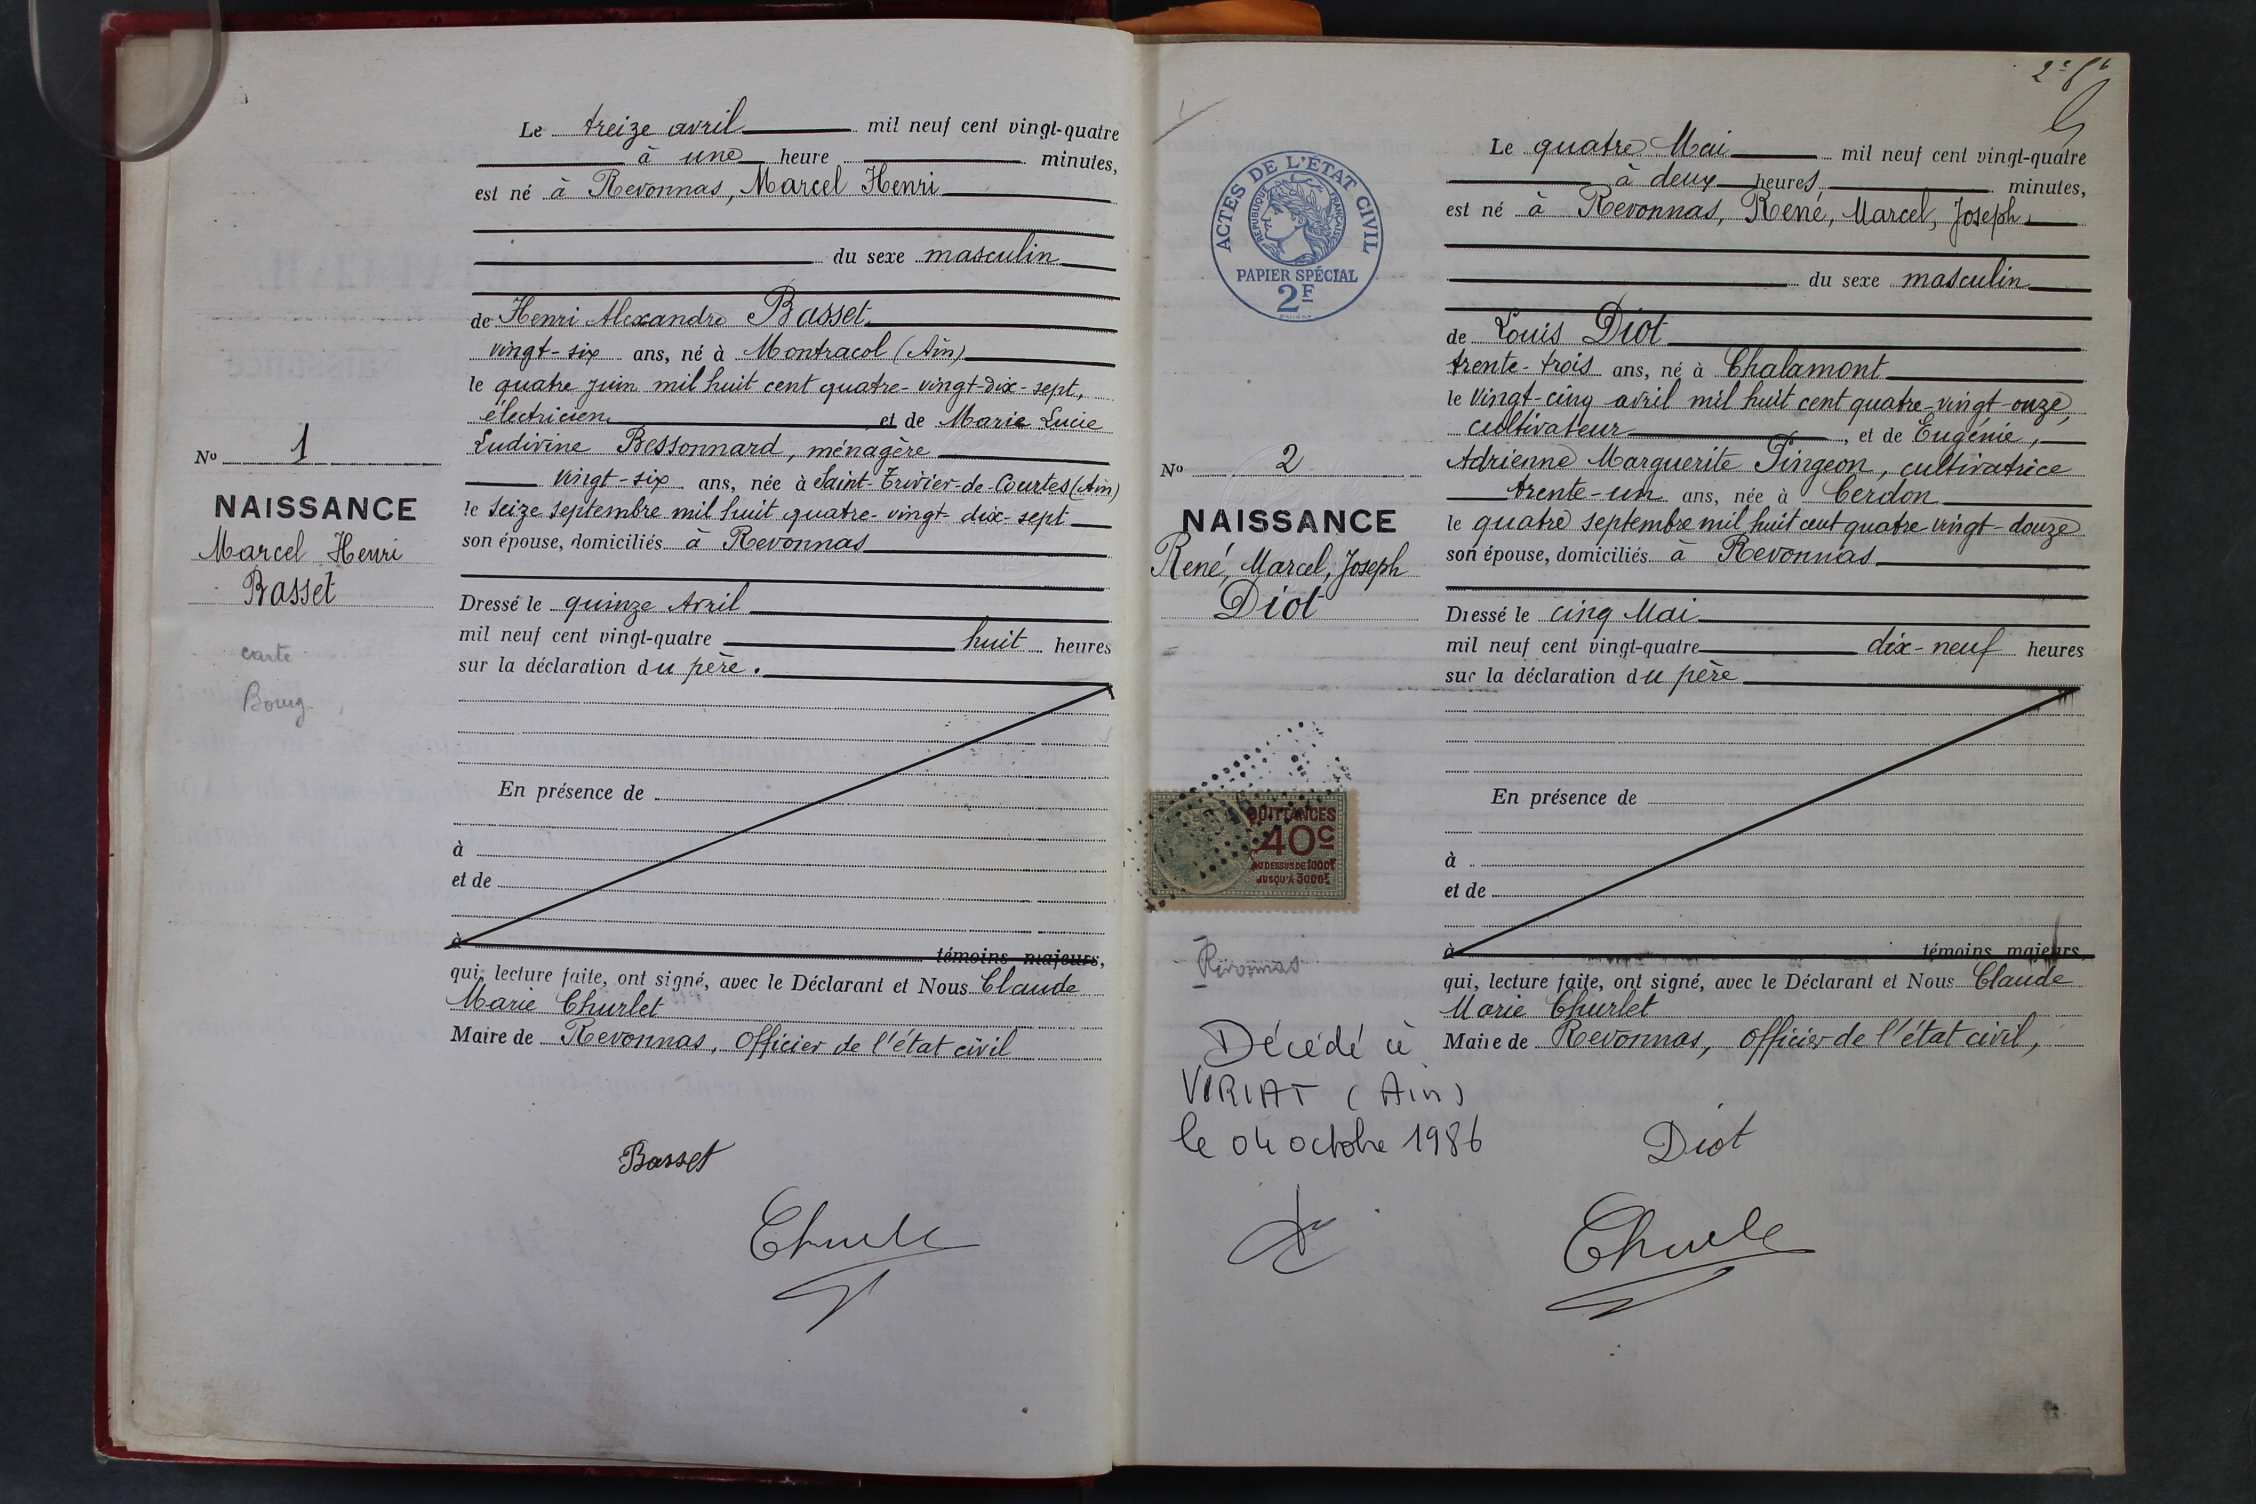 Le treize avril mil neuf cent vingt-quatre
à une heure minutes,
est né à Revonnas, Marcel Henri
du sexe masculin
de Henri Alexandre Basset
vingt-six ans, né à Montracol (Ain)
le quatre juin mil huit cent quatre-vingt-dix-sept,
électricien et de Marie Lucie
Ludivine Bessonnard, ménagère
vingt-six ans, née à Saint-Trivier-de-Courtes (Ain)
le seize septembre mil huit quatre-vingt dix-sept
son épouse, domiciliés à Revonnas
Dressé le quinze Avril
mil neuf cent vingt-quatre huit heures
sur la déclaration du père.
En présence de
à
et de
à témoins majeurs,
qui, lecture faite, ont signé, avec le Déclarant et Nous Claude
Marie Churlet
Maire de Revonnas, Officier de l'état civil
Basset
No 1
NAISSANCE
Marcel Henri
Basset
carte
Bourg
ACTES DE L'ÉTAT CIVIL
RÉPUBLIQUE FRANÇAISE
PAPIER SPÉCIAL
2F
No 2
NAISSANCE
René, Marcel, Joseph
Diot
QUITTANCES
40c
AU DESSUS DE 1000F
JUSQU'A 3000F
Revonnas
Décédé à
VIRIAT (Ain)
le 04 octobre 1986
Le quatre Mai mil neuf cent vingt-quatre
à deux heures, minutes,
est né à Revonnas, René, Marcel, Joseph,
du sexe masculin
de Louis Diot
trente-trois ans, né à Chalamont
le vingt-cinq avril mil huit cent quatre-vingt-onze,
cultivateur, et de Eugénie,
Adrienne Marguerite Pingeon, cultivatrice
trente-un ans, née à Cerdon
le quatre septembre mil huit cent quatre vingt-douze
son épouse, domiciliés à Revonnas
Dressé le cinq Mai
mil neuf cent vingt-quatre dix-neuf heures
sur la déclaration du père
En présence de
à
et de
à témoins majeurs,
qui, lecture faite, ont signé, avec le Déclarant et Nous Claude
Marie Churlet
Maire de Revonnas, Officier de l'état civil,
Diot